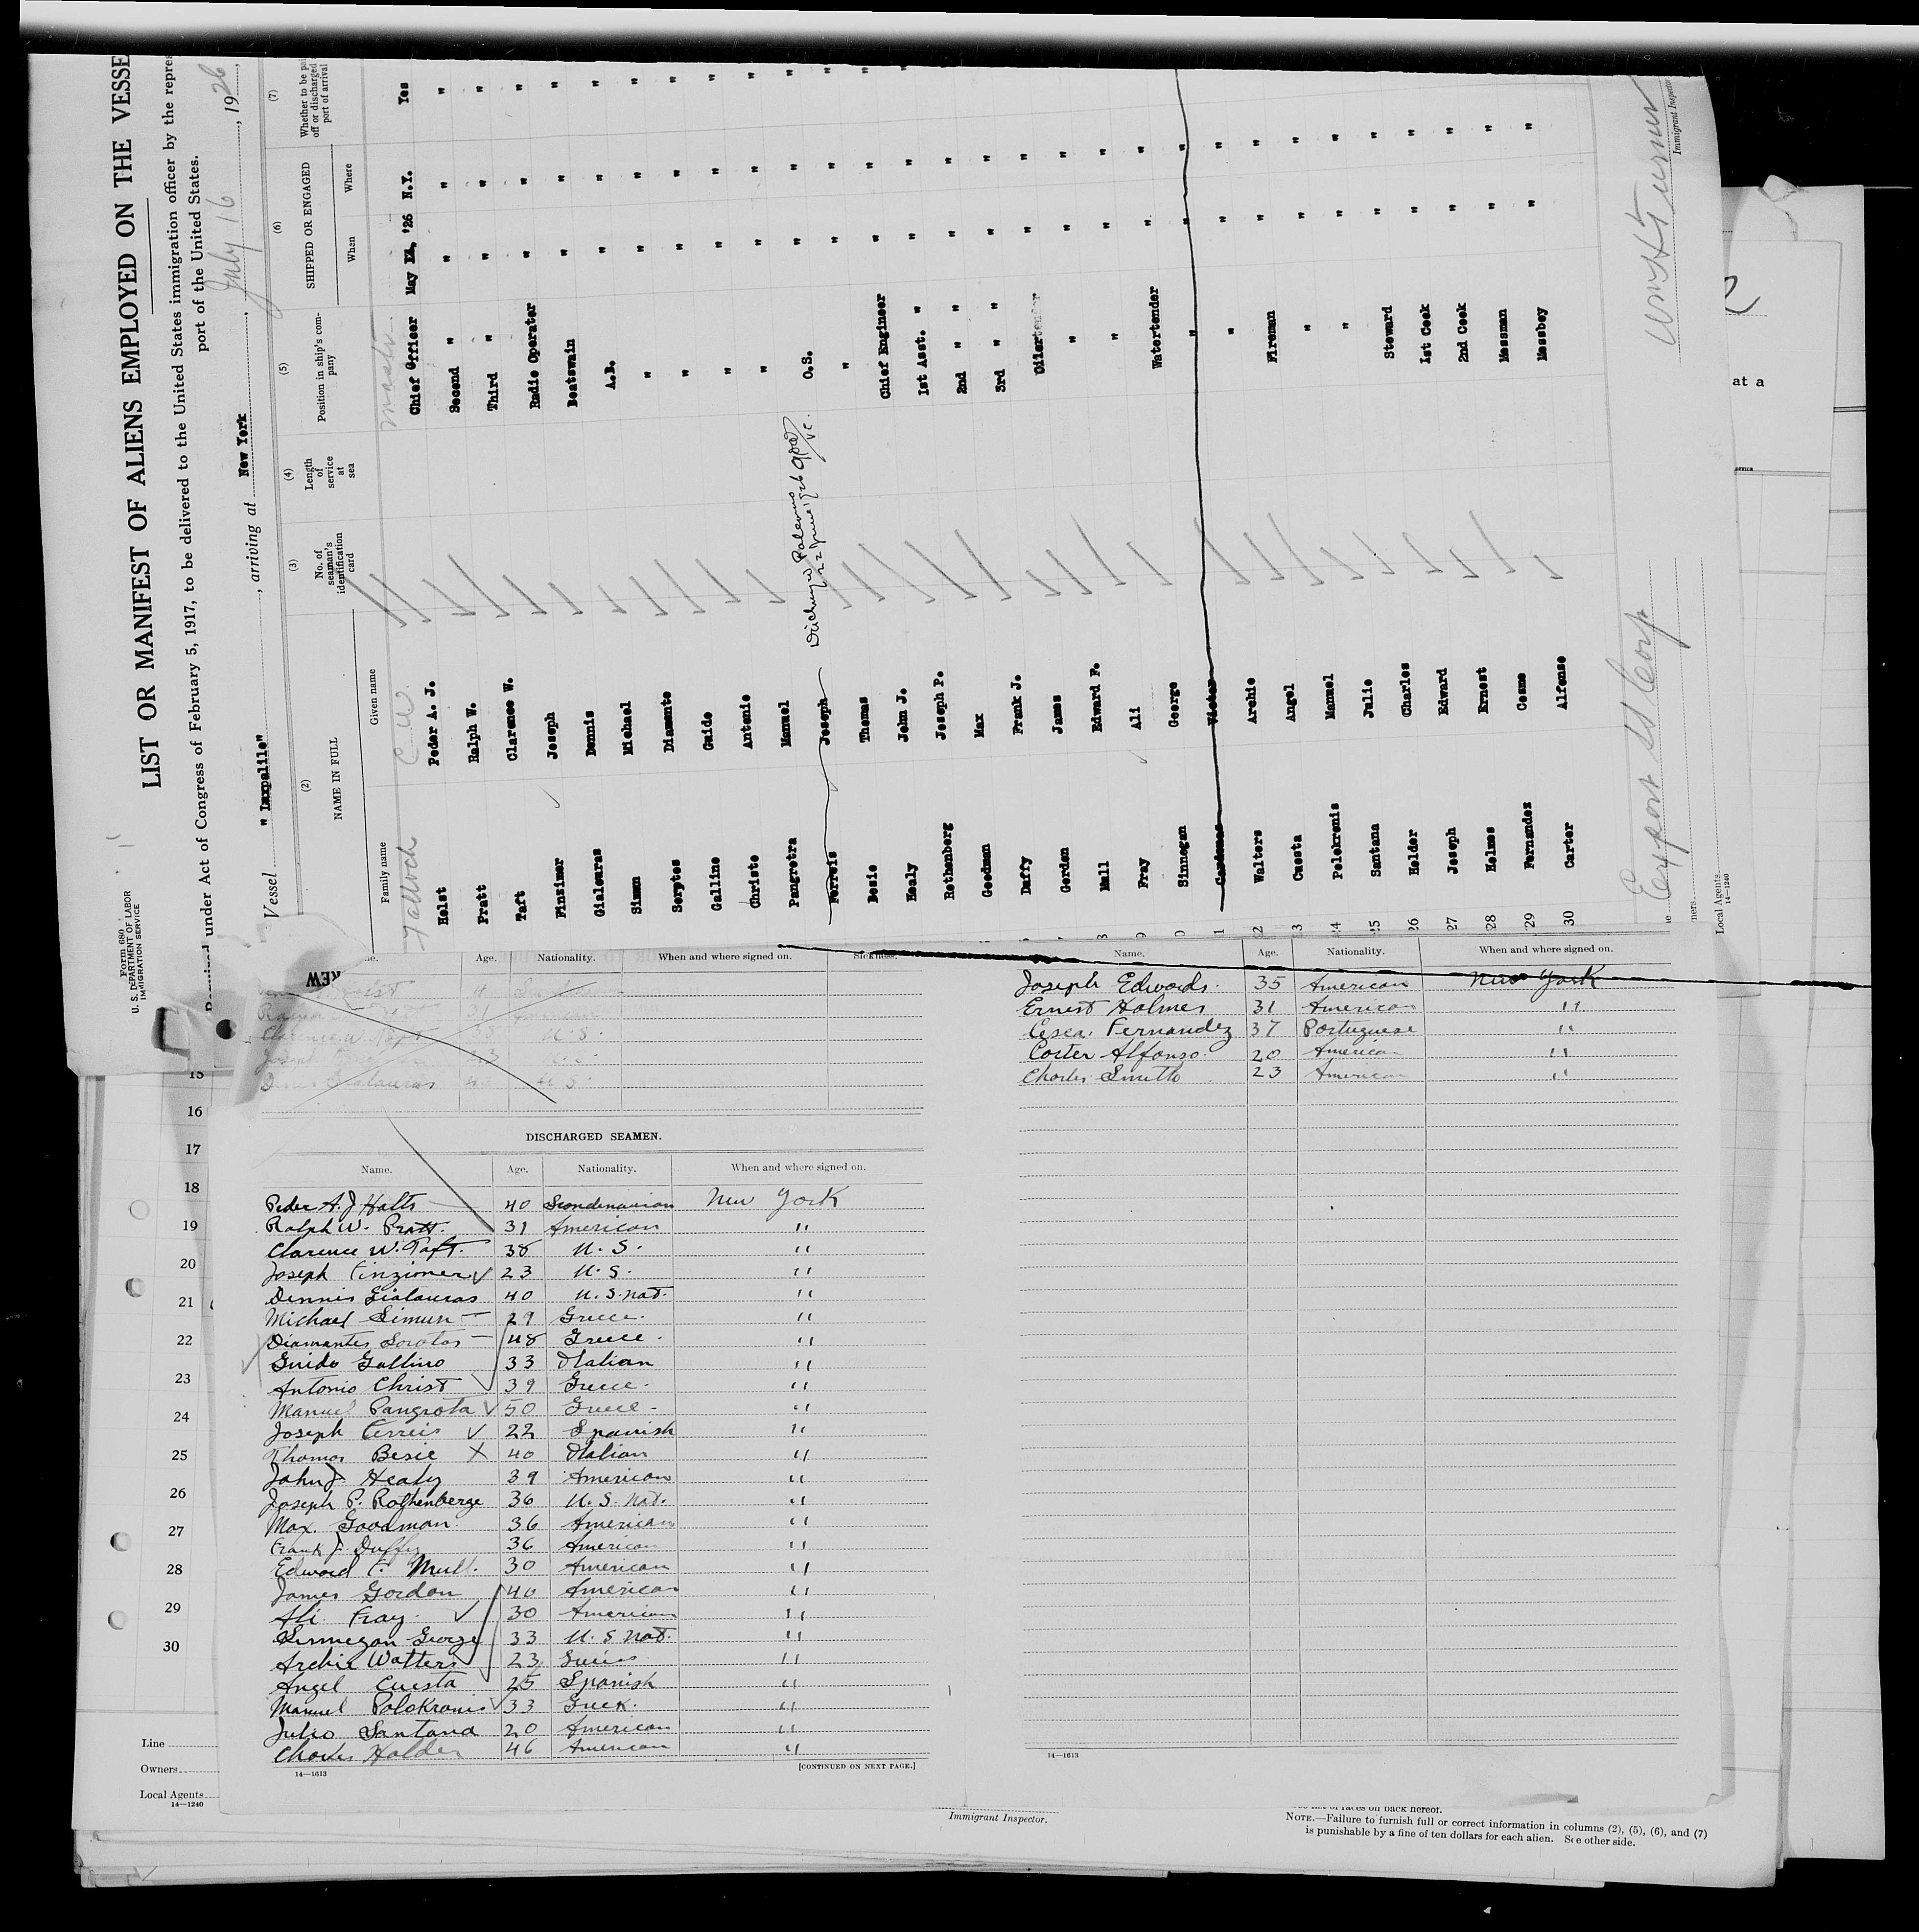 LIST OR MANIFEST OF ALIENS EMPLOYED ON THE VESSE
under Act of Congress of February 5, 1917, to be delivered to the United States immigration officer by the repres
port of the United States.
Form 680
U. S. DEPARTMENT OF LABOR
IMMIGRATION SERVICE
Vessel "Laxpalile", arriving at New York, July 16, 1926,
(2) (3) (4) (5) (6) (7)
NAME IN FULL
No. of seaman's identification card
Length of service at sea
Position in ship's company
SHIPPED OR ENGAGED
Whether to be pai off or discharged port of arrival
Family name Given name When Where
Talloch C. W. Master
Holst Peder A. J. Chief Officer May 12, '26 N.Y. Yes
Pratt Ralph W. Second " " " "
Taft Clarence W. Third " " " "
Finzimer Joseph Radio Operator " " "
Gialouras Dennis Boatswain " " "
Simun Michael A.B. " " "
Serytos Diamante " " " "
Galline Guido " " " "
Christo Antonio " " " "
Pangretra Manuel " " " "
Ferreis Joseph Discharged Palermo 22 June 1926 O.S. " " "
Besie Thomas " " " "
Healy John J. Chief Engineer " " "
Rothenberg Joseph P. 1st Asst. " " "
Goodman Max 2nd " " " "
Duffy Frank J. 3rd " " " "
Gordon James Oiler " "
Mull Edward F. " " "
Fray Ali " " "
Sinnegan George Watertender " "
Cardenas Victor " " "
22 Walters Archie " " "
23 Cuesta Angel Fireman " "
24 Polokronis Manuel " " "
25 Santana Julio " " "
26 Holder Charles Steward " "
27 Joseph Edward 1st Cook " "
28 Holmes Ernest 2nd Cook " "
29 Fernandez Cosme Messman " "
30 Carter Alfonso Messboy " "
Export SS Corp
Wm H Turner
Immigrant Inspector
Local Agents
14—1240
REW
Age. Nationality. When and where signed on. Sickness.
Clarence W. Taft 38 U. S.
Joseph
DISCHARGED SEAMEN.
Name. Age. Nationality. When and where signed on.
Peder A. J Holts 40 Scondenavian New York
Ralph W. Pratt. 31 American "
Clarence W. Taft. 38 U. S. "
Joseph Finzimer 23 U. S. "
Dennis Gialouras 40 U. S. nat. "
Michael Simun 29 Greece. "
Diamantes Sorotos 48 Greece. "
Guido Gallino 33 Italian "
Antonio Christ 39 Greece. "
Manuel Pangrota 50 Greece - "
Joseph Ferreis 22 Spanish "
Thomas Besie X 40 Italian "
John J. Healy 39 American "
Joseph P. Rothenberge 36 U. S. Nat. "
Max. Goodman 36 American "
Frank J. Duffy 36 American "
Edward F. Mull. 30 American "
James Gordon 40 American "
Ali Fray 30 American "
Sinnegan George 33 U. S nat. "
Archie Watters 23 "
Angel Cuesta 25 Spanish "
Manuel Polokronis 33 Greek. "
Julio Santana 20 American "
Charles Holder 46 American "
14—1613
[CONTINUED ON NEXT PAGE.]
Name. Age. Nationality. When and where signed on.
Joseph Edwards. 35 American New York
Ernest Holmes 31 American "
Fernandez 37 Portuguese "
Carter Alfonso 20 American "
Charles Smith 23 American "
14—1613
15
16
17
18
19
20
21
22
23
24
25
26
27
28
29
30
Line
Owners
Local Agents
14—1240
at a
Immigrant Inspector.
list of races on back hereof.
NOTE.—Failure to furnish full or correct information in columns (2), (5), (6), and (7)
is punishable by a fine of ten dollars for each alien. See other side.